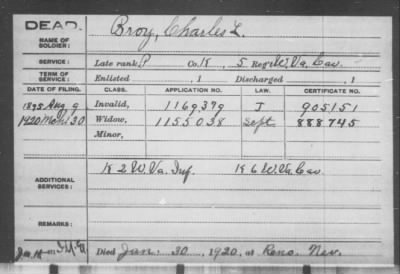 DEAD.
NAME OF SOLDIER: Broy, Charles L.
SERVICE: Late rank, P Co. K, 5 Reg't W. Va. Cav.
TERM OF SERVICE: Enlisted , 1 Discharged , 1
DATE OF FILING. CLASS. APPLICATION NO. LAW. CERTIFICATE NO.
1895 Aug 9 Invalid, 1169,379 J 905151
1920 Mch 30 Widow, 1155038 Sept. 888745
Minor,
ADDITIONAL SERVICES: K 2 W. Va. Inf. K 6 W. Va. Cav.
REMARKS:
Died Jan. 30, 1920, at Reno. Nev.